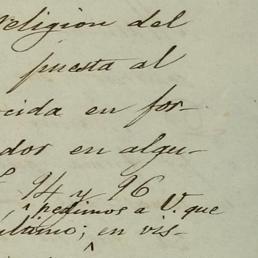 religion del
puesta al
cida en for-
dor en algu-
94 y 96
, pedimos a V. que
ultimo; en vis-